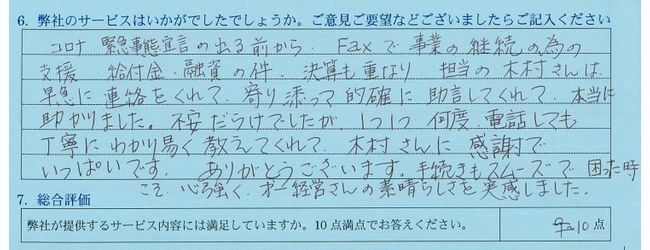 6. 弊社のサービスはいかがでしたでしょうか。ご意見ご要望などございましたらご記入ください
コロナ 緊急事態宣言の出る前から. Faxで 事業の継続の為の
支援 給付金・融資の件. 決算も重なり 担当の木村さんは
早急に連絡をくれて. 寄り添って的確に助言してくれて 本当に
助かりました。不安だらけでしたが、1つ1つ 何度、電話しても
丁寧にわかり易く教えてくれて. 木村さんに感謝で
いっぱいです. ありがとうございます。手続きもスムーズで 困った時
こそ. 心強く. オー経営さんの素晴らしさを実感しました.
7. 総合評価
弊社が提供するサービス内容には満足していますか。10点満点でお答えください。 10 点